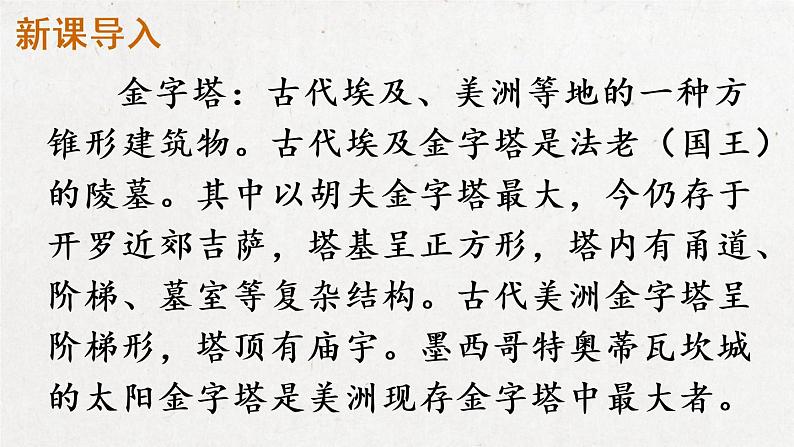 新课导入
金字塔：古代埃及、美洲等地的一种方
锥形建筑物。古代埃及金字塔是法老（国王）
的陵墓。其中以胡夫金字塔最大，今仍存于
开罗近郊吉萨，塔基呈正方形，塔内有甬道、
阶梯、墓室等复杂结构。古代美洲金字塔呈
阶梯形，塔顶有庙宇。墨西哥特奥蒂瓦坎城
的太阳金字塔是美洲现存金字塔中最大者。